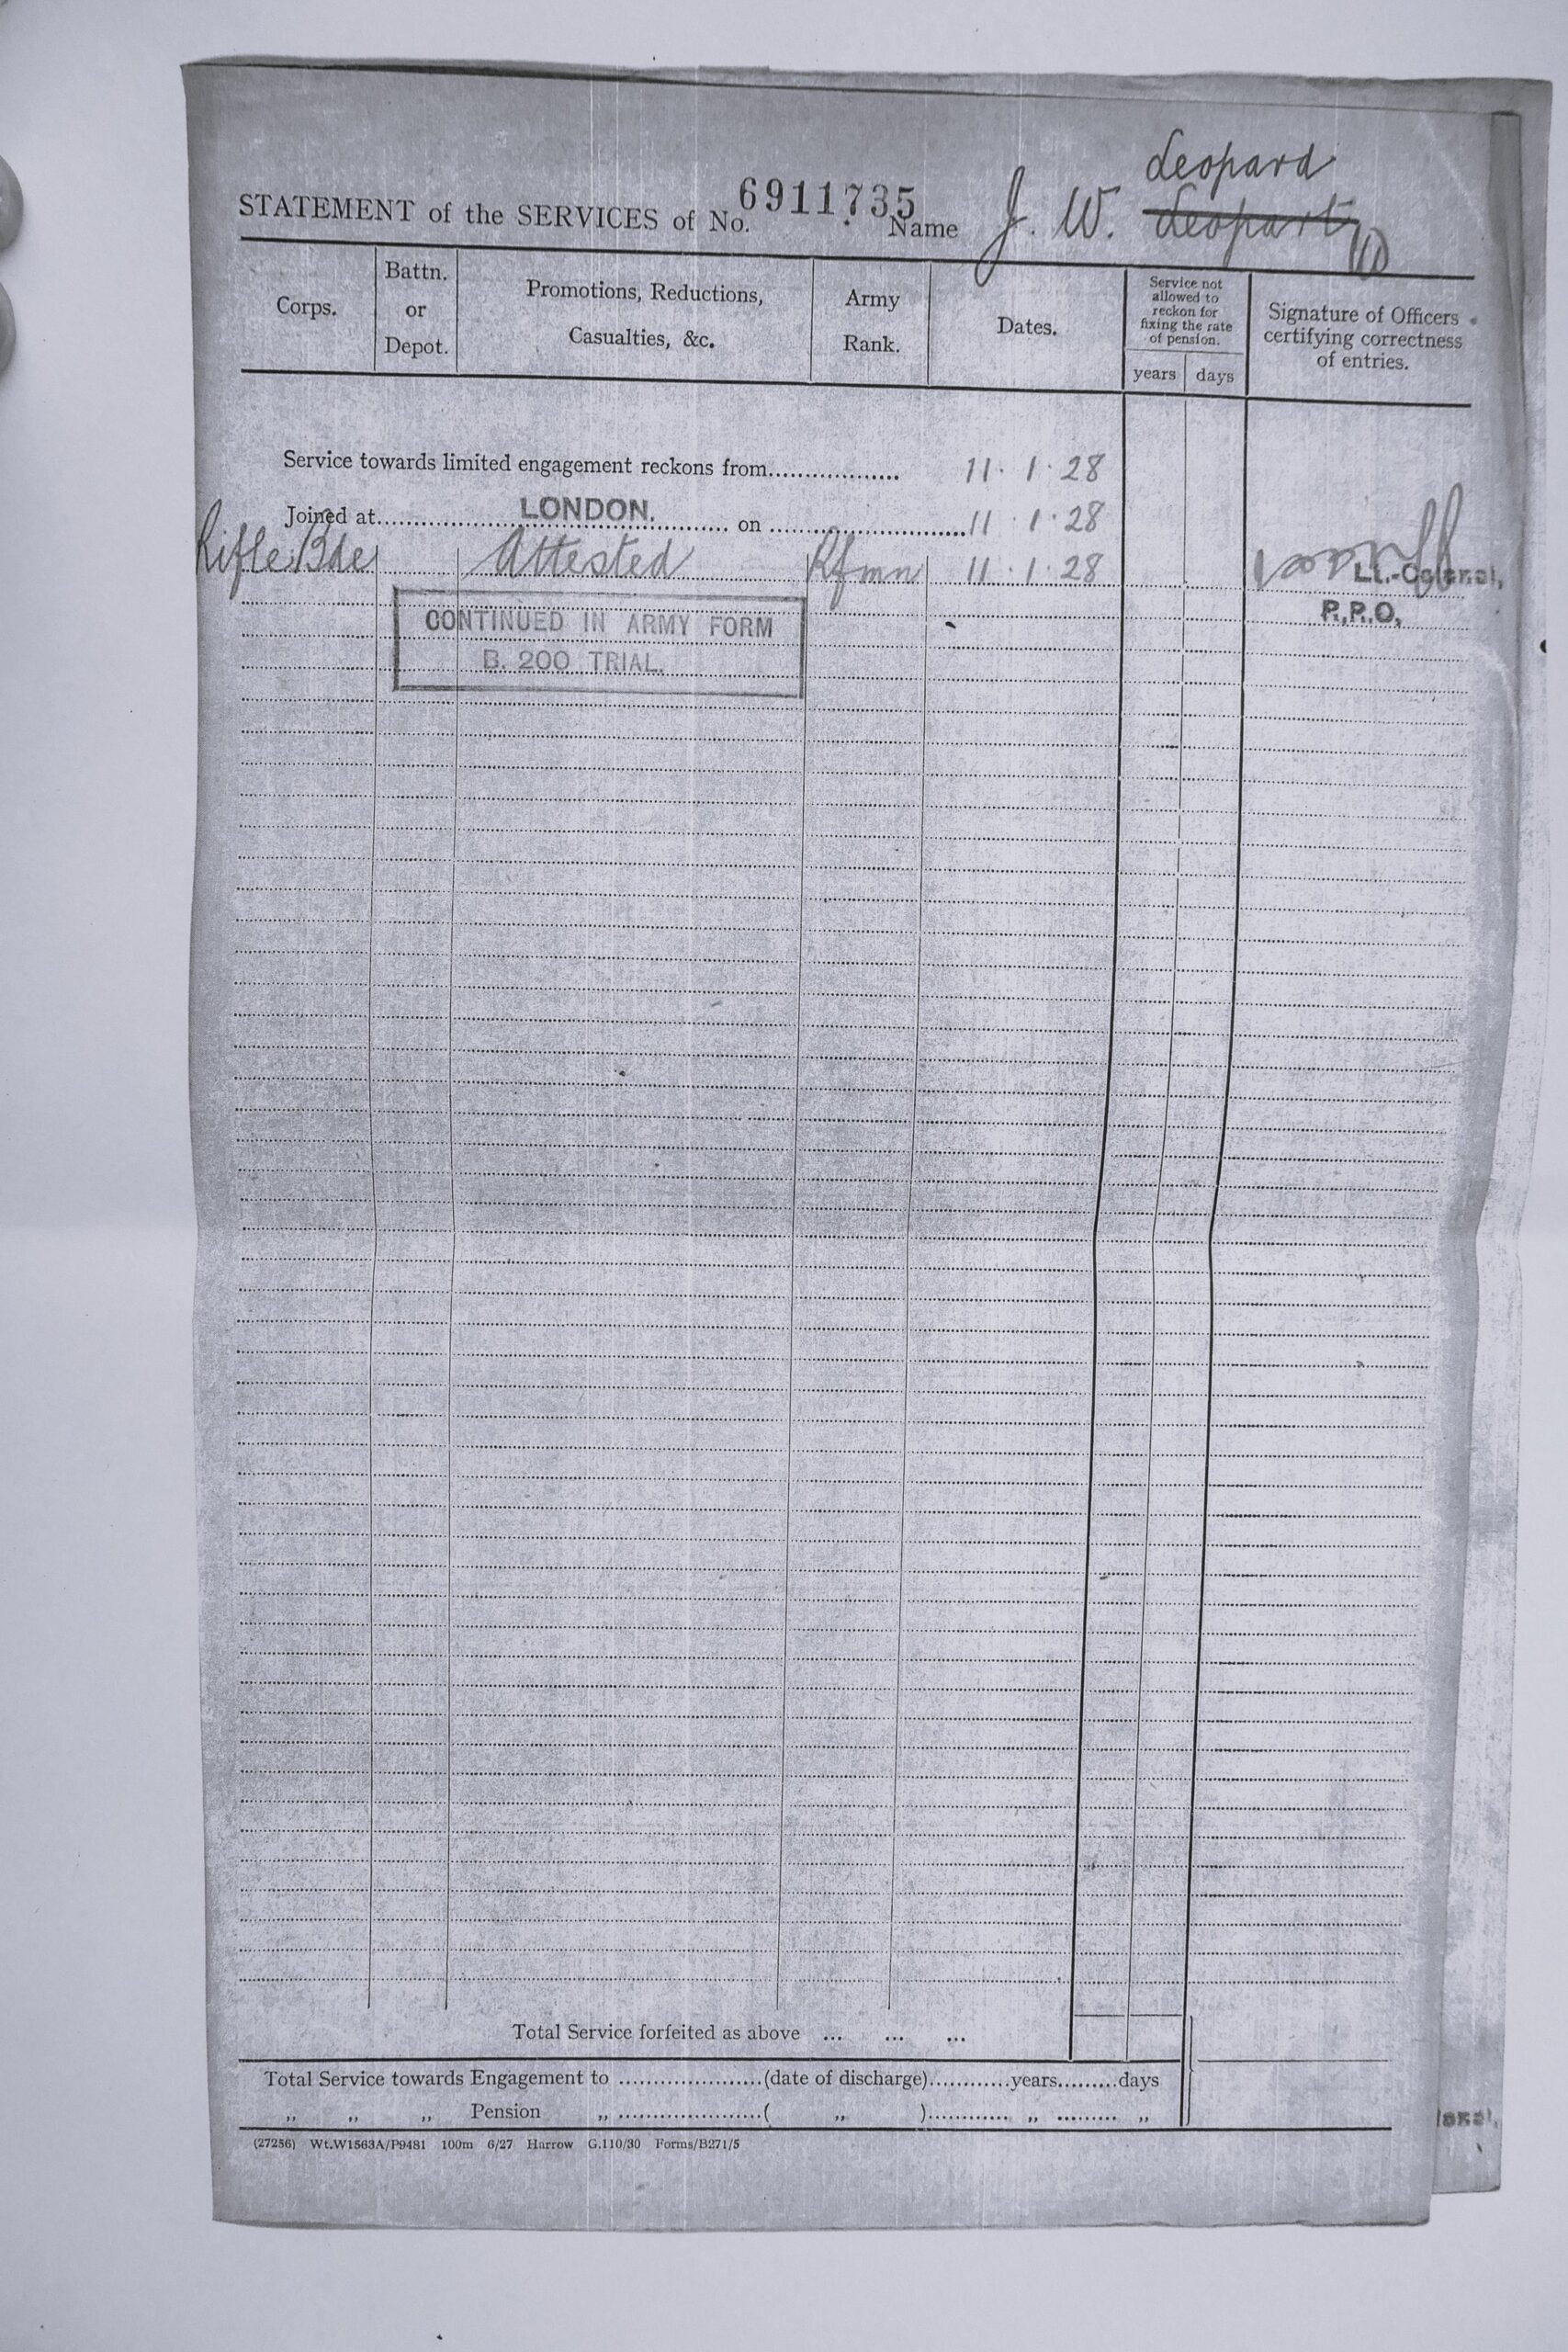 Leopard
STATEMENT of the SERVICES of No. 6911735 Name J. W. Leopart
Corps.
Battn. or Depot.
Promotions, Reductions, Casualties, &c.
Army Rank.
Dates.
Service not allowed to reckon for fixing the rate of pension.
years days
Signature of Officers certifying correctness of entries.
Service towards limited engagement reckons from.................. 11.1.28
Joined at........ LONDON. ........ on ........ 11.1.28
Rifle Bde Attested Rfmn 11.1.28 Lt.-Colonel,
P.R.O.
CONTINUED IN ARMY FORM
B. 200 TRIAL.
Total Service forfeited as above ... ... ...
Total Service towards Engagement to .....................(date of discharge)............years.........days
„ „ „ Pension „ .....................( „ )............ „ ......... „
(27256) Wt.W1563A/P9481 100m 6/27 Harrow G.110/30 Forms/B271/5
onel,